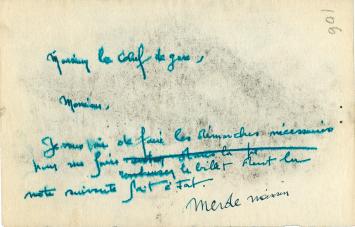 901
Monsieur le Chef de gare,
Monsieur,
Je vous prie de faire les démarches nécessaires
pour me faire
rembourser le billet dont la
note suivante fait état.
Merde